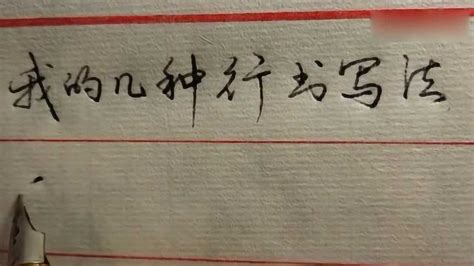 我的几种行书写法